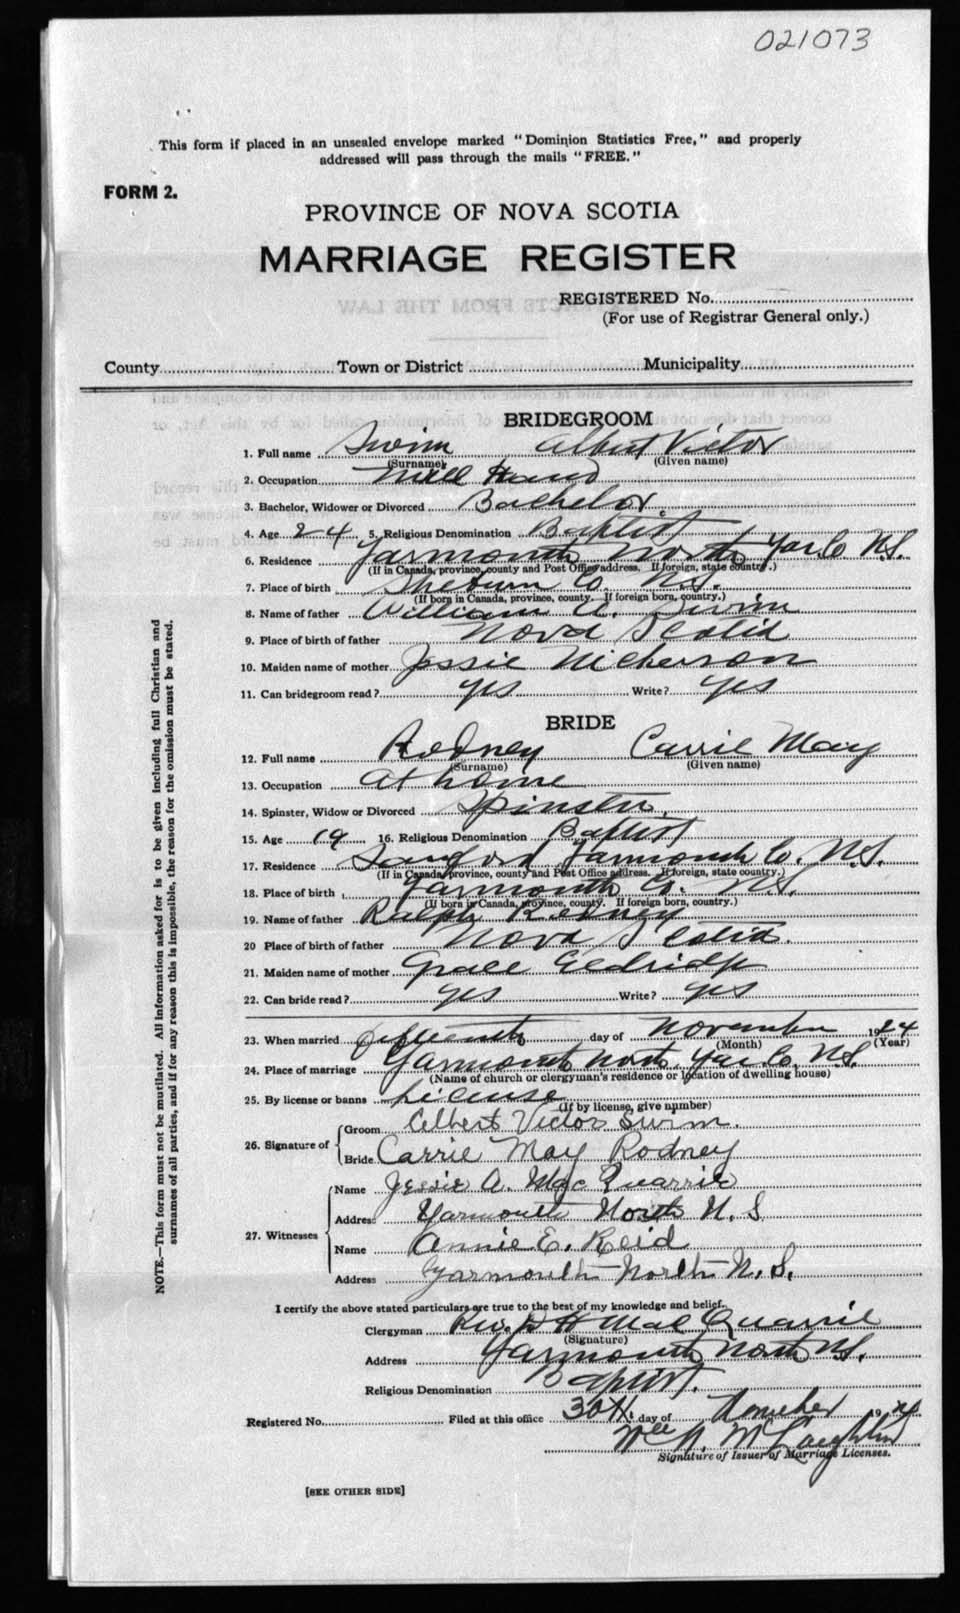 021073
This form if placed in an unsealed envelope marked "Dominion Statistics Free," and properly
addressed will pass through the mails "FREE."
FORM 2.
PROVINCE OF NOVA SCOTIA
MARRIAGE REGISTER
REGISTERED No.
(For use of Registrar General only.)
County Town or District Municipality
BRIDEGROOM
1. Full name Swim Albert Victor
(Surname) (Given name)
2. Occupation Mill Hand
3. Bachelor, Widower or Divorced Bachelor
4. Age 24 5. Religious Denomination Baptist
6. Residence Yarmouth North Yar. Co N.S.
(If in Canada, province, county and Post Office address. If foreign, state country.)
7. Place of birth Shelburn Co. N.S.
(If born in Canada, province, county. If foreign born, country.)
8. Name of father William A. Swim
9. Place of birth of father Nova Scotia
10. Maiden name of mother Jessie Nickerson
11. Can bridegroom read? yes Write? yes
BRIDE
12. Full name Rodney Carrie May
(Surname) (Given name)
13. Occupation at home
14. Spinster, Widow or Divorced Spinster
15. Age 19 16. Religious Denomination Baptist
17. Residence Sanford Yarmouth Co. N.S.
(If in Canada, province, county and Post Office address. If foreign, state country.)
18. Place of birth Yarmouth Co. N.S.
(If born in Canada, province, county. If foreign born, country.)
19. Name of father Ralph Rodney
20 Place of birth of father Nova Scotia.
21. Maiden name of mother Grace Eldridge
22. Can bride read? yes Write? yes
23. When married fifteenth day of November 1924
(Month) (Year)
24. Place of marriage Yarmouth North Yar. Co. N.S.
(Name of church or clergyman's residence or location of dwelling house)
25. By license or banns License
(If by license, give number)
26. Signature of Groom Albert Victor Swim.
Bride Carrie May Rodney
27. Witnesses Name Jessie A. MacQuarrie
Address Yarmouth North N.S
Name Annie E. Reid
Address Yarmouth North N.S.
I certify the above stated particulars are true to the best of my knowledge and belief.
Clergyman Rev. D H MacQuarrie
(Signature)
Address Yarmouth North N.S.
Religious Denomination Baptist.
Registered No. Filed at this office 30th day of November 1924
McLaughlin
Signature of Issuer of Marriage Licenses.
[SEE OTHER SIDE]
NOTE.—This form must not be mutilated. All information asked for is to be given including full Christian and
surnames of all parties, and if for any reason this is impossible, the reason for the omission must be stated.